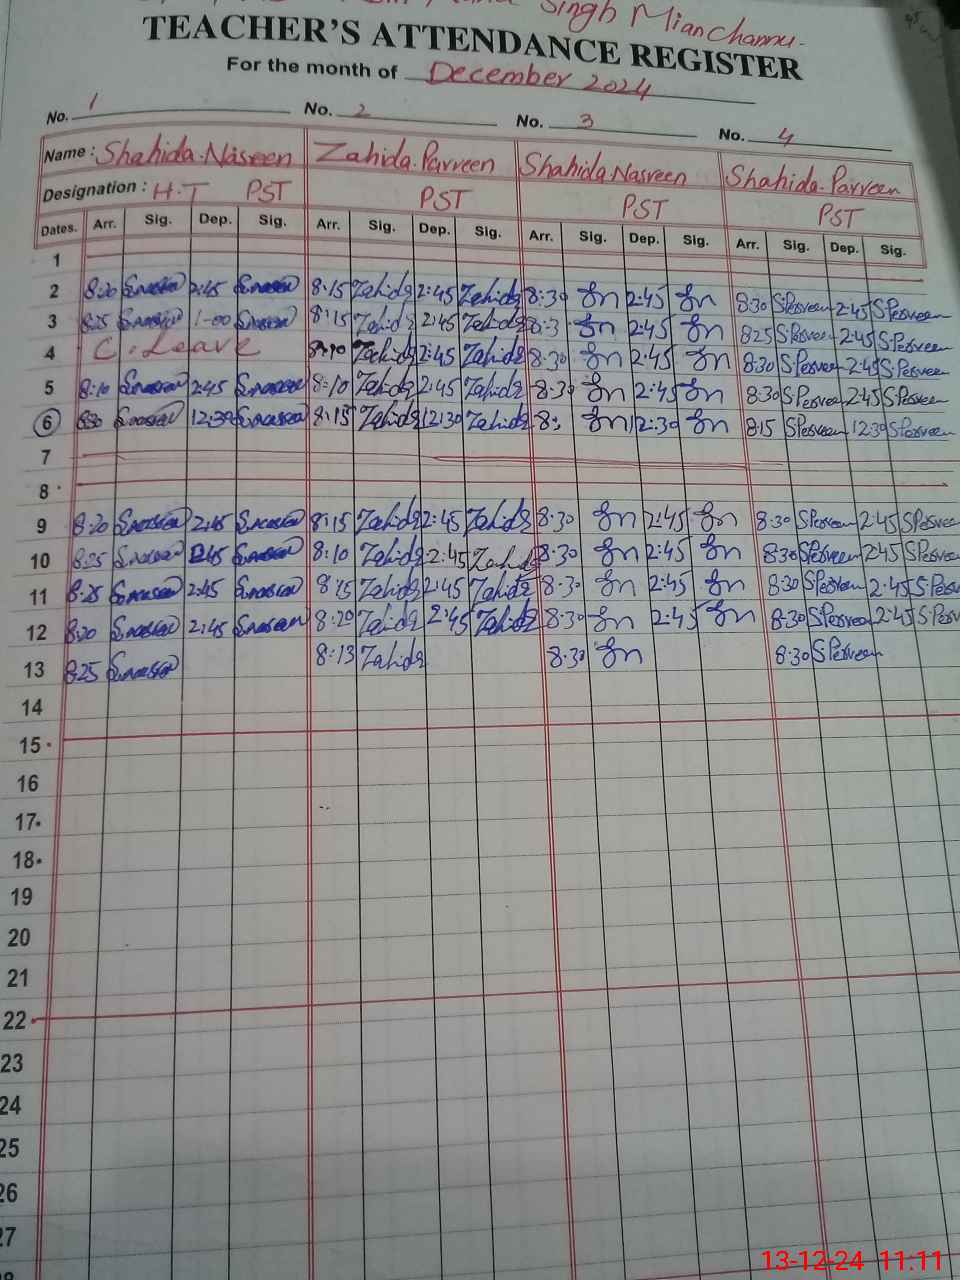 Singh Mianchannu.
TEACHER'S ATTENDANCE REGISTER
For the month of December 2024
No. 1 No. 2 No. 3 No. 4
Name : Shahida.Naseen Zahida.Parveen Shahida.Nasreen Shahida.Parveen
Designation : H.T PST PST PST PST
Dates. Arr. Sig. Dep. Sig. Arr. Sig. Dep. Sig. Arr. Sig. Dep. Sig. Arr. Sig. Dep. Sig.
1
2 8:20 2:45 8:15 Zahida 2:45 Zahida 8:30 2:45 8:30 S.Perveen 2:45 S.Perveen
3 8:25 1-00 8:15 Zahida 2:45 Zahida 8:3 2:45 8:25 S.Perveen 2:45 S.Perveen
4 C. Leave 8:10 Zahida 2:45 Zahida 8:30 2:45 8:30 S.Perveen 2:45 S.Perveen
5 8:10 2:45 8:10 Zahida 2:45 Zahida 8:30 2:45 8:30 S.Perveen 2:45 S.Perveen
6 12:30 8:15 Zahida 12:30 Zahida 8: 12:30 8:15 S.Perveen 12:30 S.Perveen
7
8
9 8:20 2:45 8:15 Zahida 2:45 Zahida 8:30 2:45 8:30 S.Perveen 2:45 S.Perveen
10 8:25 2:45 8:10 Zahida 2:45 Zahida 8:30 2:45 8:30 S.Perveen 2:45 S.Perveen
11 8:25 2:45 8:15 Zahida 2:45 Zahida 8:30 2:45 8:30 S.Perveen 2:45 S.Perv
12 8:20 2:45 8:20 Zahida 2:45 Zahida 8:30 2:45 8:30 S.Perveen 2:45 S.Perv
13 8:25 8:13 Zahida 8:30 8:30 S.Perveen
14
15
16
17
18
19
20
21
22
23
24
25
26
27
13-12-24 11:11